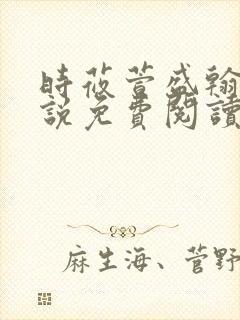 時莜萱盛翰
説免費閱讀
麻生海、菅野